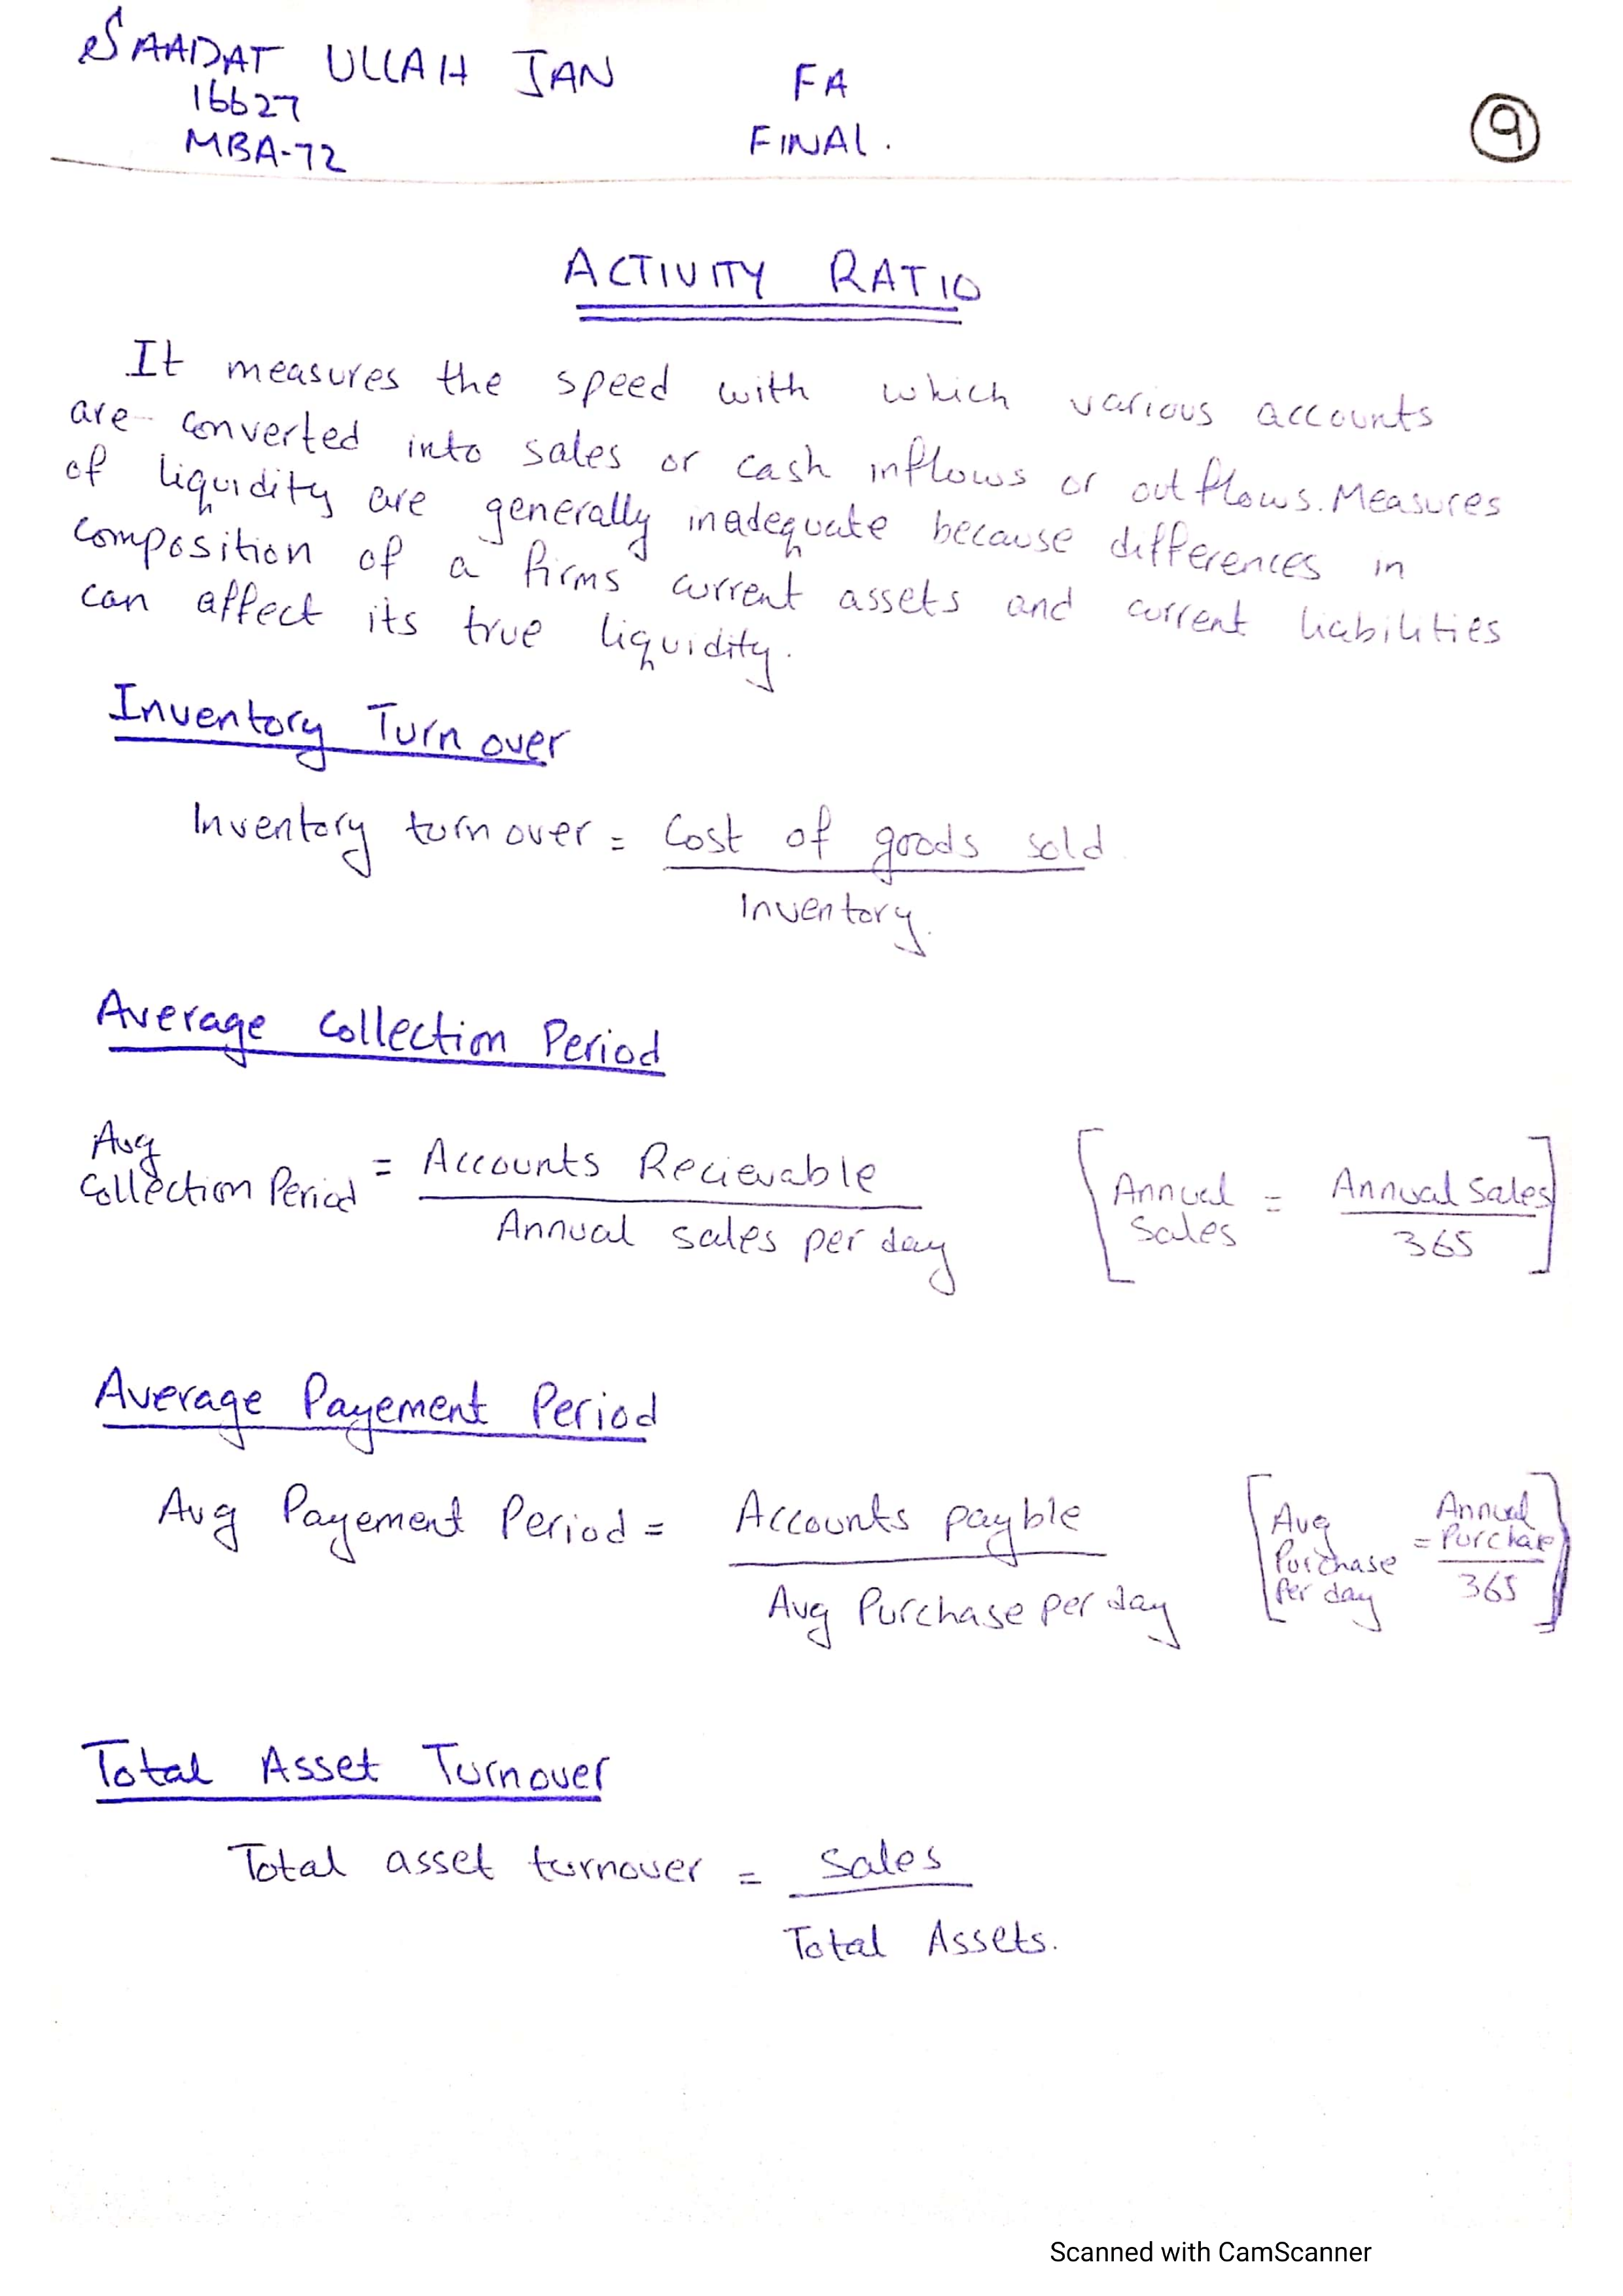 SAADAT ULLAH JAN FA
16627
MBA-72 FINAL. 9
ACTIVITY RATIO
It measures the speed with which various accounts
are converted into sales or cash inflows or outflows. Measures
of liquidity are generally inadequate because differences in
composition of a firms current assets and current liabilities
can affect its true liquidity.
Inventory Turn over
Inventory turn over = Cost of goods sold
Inventory.
Average Collection Period
Avg
Collection Period = Accounts Recievable
Annual sales per day
[Annual Sales = Annual Sales
365]
Average Payement Period
Avg Payement Period = Accounts payble
Avg Purchase per day
[Avg Purchase Per day = Annual Purchase
365]
Total Asset Turnover
Total asset turnover = Sales
Total Assets.
Scanned with CamScanner